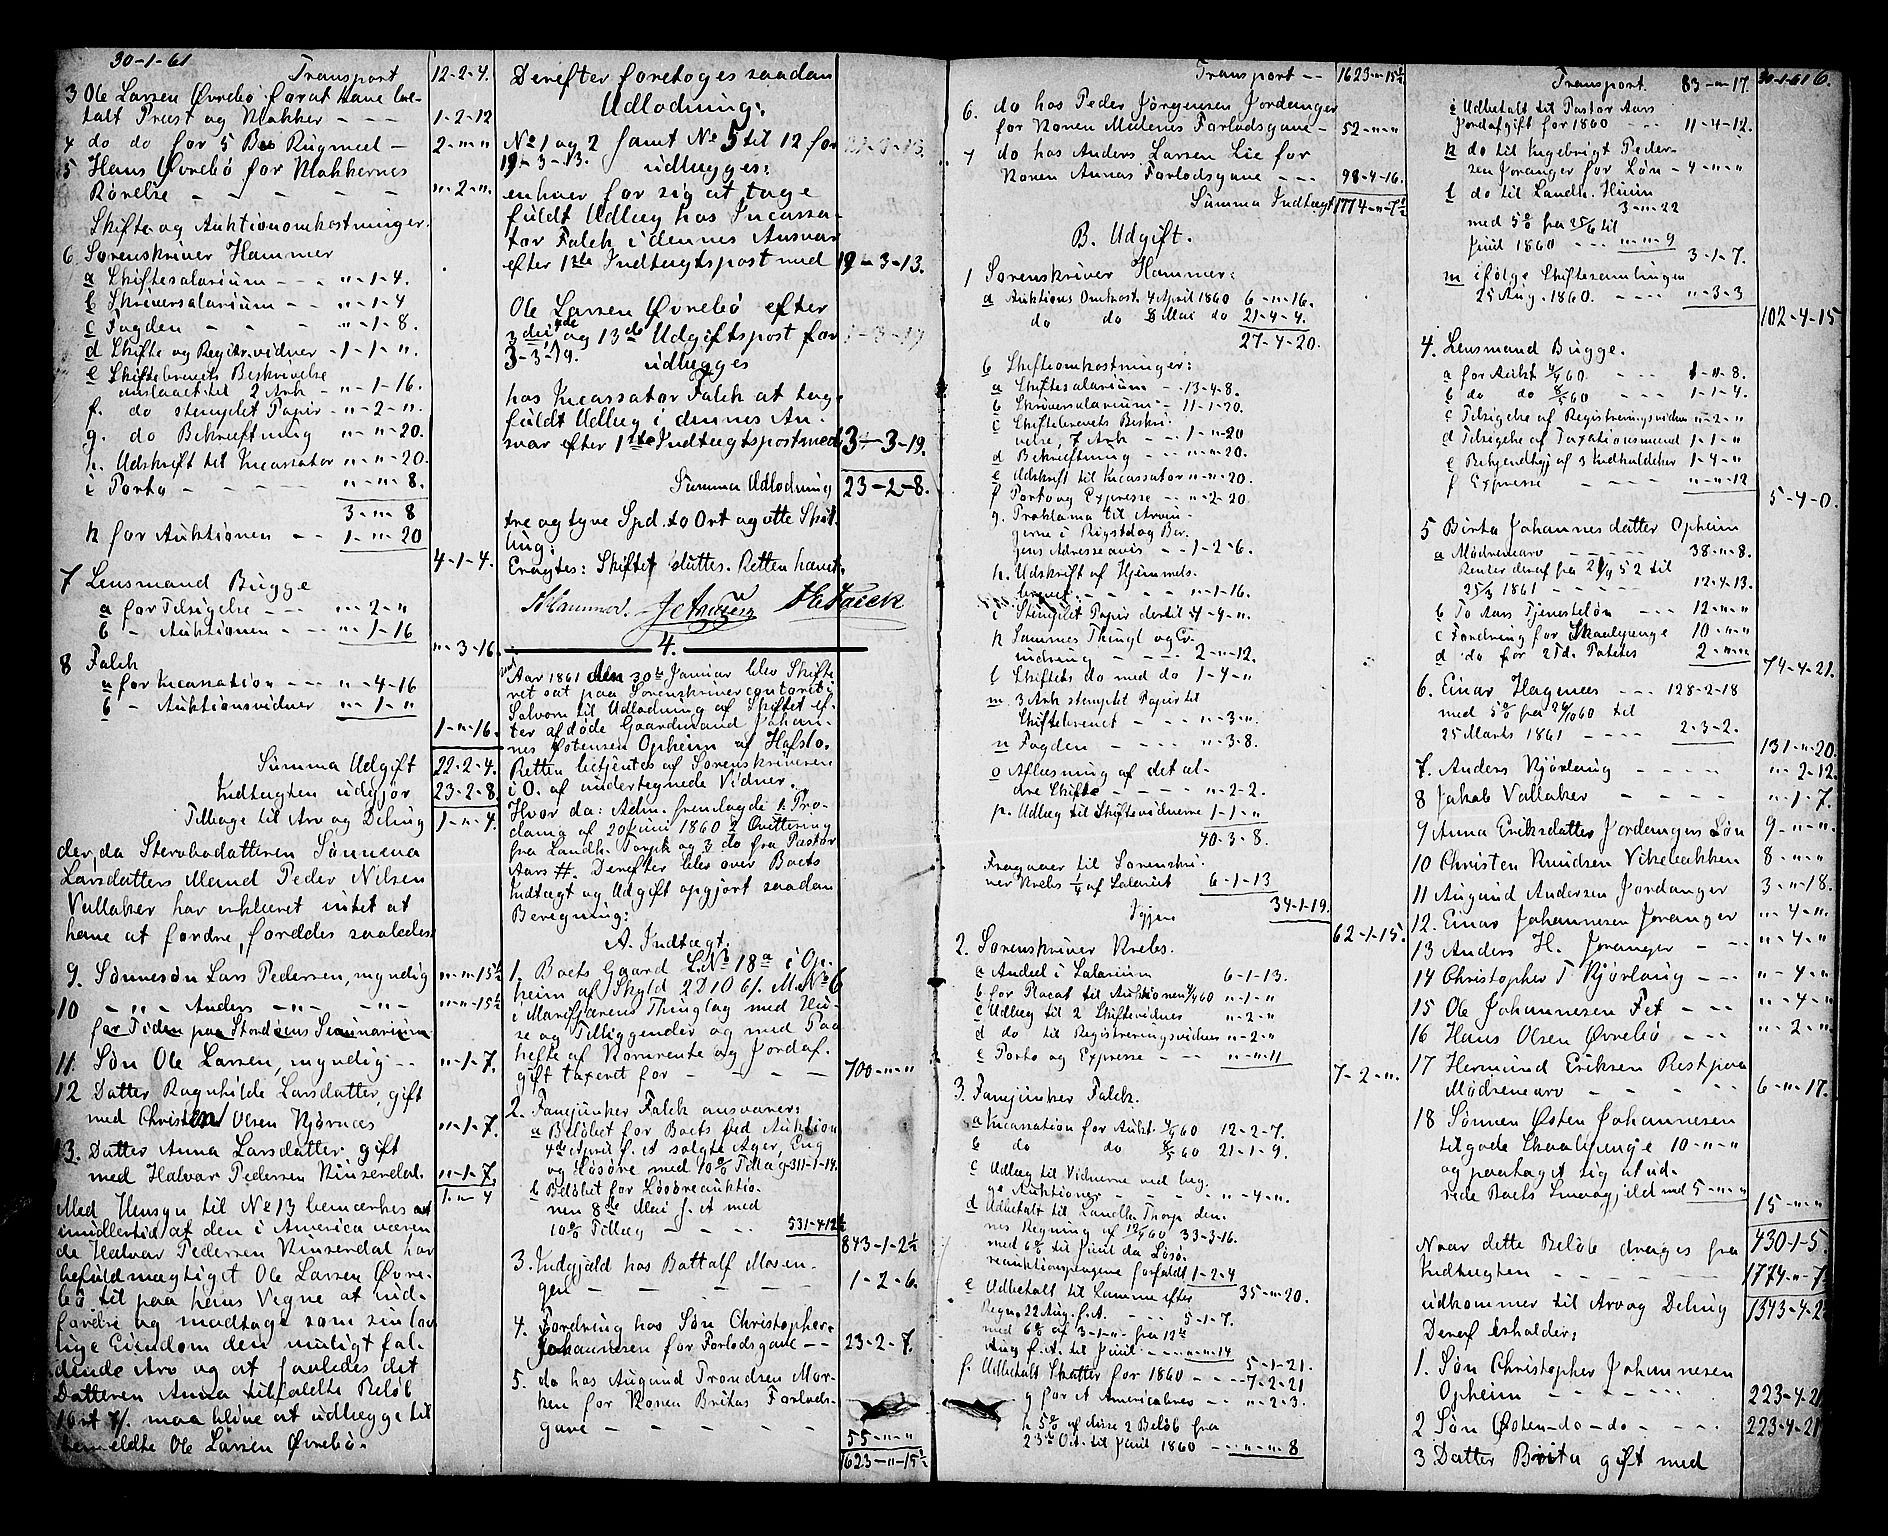 30-1-61
Transport 12-2-4.
3 Ole Larsen Øvrebø forat have be-
talt Præst og Klokker - - - 1-2-12
4 do do for 5 Rugmeel - 2-"-"
5 Hans Øvrebø for Klokkernes
Røvelse - - - - "-2-".
Skifte og Auktionomkostninger.
6 Sorenskriver Hammer
a Skiftesalarium - - - "-1-4.
b Skriversalarium - - "-1-4
c Fogden - - - "-1-8.
d Skifte og Registr.vidner -1-1-".
e Skiftebrevets Beskrivelse
anslaaet til 2 Ark - "-1-16.
f. do stemplet Papir - "-2-".
g. do Bekræftning "-"-20.
h. Udskrift til Incassator "-"-20.
i Porto - - - - "-"-8.
3-"-8
k for Auktionen - - 1-"-20
4-1-4.
7 Lensmand Bugge
a for Tilsigelse - - - "-2-"
b - Auktionen - - - "-1-16
"-3-16.
8 Falck
a for Incassation - - - "-4-16
b - Auktionsvidner "-1-"
1-"-16.
Summa Udgift 22-2-4.
Indtægten udgjør 23-2-8
Tilbage til Arv og Deling 1-"-4.
der, da Stervbodatteren Sønneva
Larsdatters Mand Peder Nilsen
Vallaker har erklæret intet at
have at fordre, fordeles saaledes
9. Sønnesøn Lars Pedersen, myndig "-"-15½
10 - "- "- Anders - "- - "- "-"-15½
for Tiden paa Stordøens Seminarium
11. Søn Ole Larsen, myndig - - "-1-7.
12 Datter Ragnhilde Larsdatter, gift
med Christen Olsen Kjørnæs "-1-7.
13. Datter Anna Larsdatter, gift
med Halvar Pedersen Kinserdal. "-1-7
1-"-4
Med Hensyn til No 13 bemærkes at
imidlertid af den i America væren-
de Halvar Pedersen Kinserdal har
befuldmægtiget Ole Larsen Øvre-
bø til paa hans Vegne at ind-
fordre og modtage som sin lov
lige Eiendom den muligt fal-
dende Arv og at saaledes det
Datteren Anna tilfaldte Beløb
1 ort 7 /. maa blive at udlægge til
bemeldte Ole Larsen Øvrebø.
Derefter foretoges saadan
Udlodning:
No 1 og 2 samt No 5 til 12 for
19-3-13. udlægges:
enhver for sig at tage
fuldt Udlæg hos Incassa-
tor Falck i dennes Ansvar
efter 1ste Indtægtspost med 19-3-13.
Ole Larsen Øvrebø efter
3die, 4de og 13de Udgiftspost for
3-3-19. udlægges
hos Incassator Falck at tage
fuldt Udlæg i dennes An-
svar efter 1ste Indtægtspost med 3-3-19.
Summa Udlodning 23-2-8.
tre og tyve Spd. to Ort og otte Skil-
ling:
Eragtes: Skiftet sluttes. Retten hævet.
Hammer. H. Falck
4.
Aar 1861 den 30te Januar blev Skifte
ret sat paa Sorenskrivercontoret i
Solvorn til Udlodning af Skiftet ef-
ter afdøde Gaardmand Johan-
nes Østensen Opheim af Hafslo.
Retten betjentes af Sorenskriveren
i O. af undertegnede Vidner.
Hvor da: Adm. fremlagde 1. Pro-
clama af 20 Juni 1860 2 Qvittering
fra Landh. Torgh og 3 do fra Pastor
Aars #. Derefter blev over Boets
Indtægt og Udgift opgjort saadan
Beregning:
A. Indtægt.
1. Boets Gaard L.No 18a i Op-
heim af Skyld 2D 1O 6/. M.No 6
i Marifjærens Thinglag med Hu-
se og Tilliggender og med Paa
hefte af Kornrente og Jordaf-
gift taxeret for - - - - 700-"-"
2. Fanejunker Falck ansvarer:
a Beløbet for Boets ved Auktion
4de April f. A solgte Ager, Eng
og Løsøre med 10% Tillæg 311-1-14.
b Beløbet for Løsøreauktio-
nen 8de Mai f. A med
10% Tillæg - - - 531-4-12½
843-1-2½
3. Indgjæld hos Battalf Moen-
gen - - - - 1-2-6.
4. Fordring hos Søn Christopher
Johannesen for Forlodsgave - - 23-2-7.
5. do hos Augund Trondsen Mor-
ken for Konen Britas Forlods-
gave - - - - - 55-"-"
1623-"-15½
Transport - - 1623-"-15½
6. do hos Peder Jørgensen Jordanger
for Konen Malenes Forlodsgave - 52-"-"
7 do hos Anders Larsen Lie for
Konen Annas Forlodsgave - - - 98-4-16.
Summa Indtægt 1774-"-7½
B. Udgift.
1 Sorenskriver Hammer:
a Auktions Omkost. 4 April 1860 6-"-16.
do do 8 Mai do 21-4-4.
27-4-20.
b Skifteomkostninger:
a Skiftesalarium - - 13-4-8.
b Skriversalarium - 11-1-20.
c Skiftebrevets Beskri-
velse, 7 Ark - - 1-"-20
d Bekræftning - - - "-"-20.
e Udskrift til Incassator "-"-20.
f Porto og Expresse - - "-2-20.
g. Proklama til Arvin-
gerne i Rigstid. og Ber-
gens Adresseavis - - 1-2-6.
h. Udskrift af Hjemmels-
brevet - - - - "-1-16.
i Stemplet Papir dertil 4-4-".
k Sammes Thingl. og Er-
indring - - - - 2-"-12.
l Skiftets do med do 1-4-"
m 3 Ark stemplet Papir til
Skiftebrevet - - - "-3-".
n Fogden - - - - "-3-8.
o Aflæsning af det æl-
dre Skifte - - - - "-2-2.
p. Udlæg til Skiftevidnerne 1-1-"
40-3-8.
Fragaaer til Sorenskri-
ver Krebs ¼ af Salariet 6-1-13
Igjen 34-1-19.
62-1-15.
2. Sorenskriver Krebs.
a Andeel i Salarium 6-1-13.
b for Placat til Auktionen 4/4 60 "-1-"
c Udlæg til 2 Skiftevidner "-2-"
d do til Registreringsvidner "-2-"
e Porto og Expresse - - - "-"-11
7-2-".
3. Fanejunker Falck.
a Incassation for Aukt. 4/4 60 12-2-7.
b do do 8/5 60 21-1-9.
c Udlæg til Vidnerne ved beg-
ge Auktioner - - - - "-4-".
d Udbetalt til Landh. Thorga den-
nes Regning af 60 33-3-16.
med 6% til Juul da Løsø-
reauktionspengene forfaldt 1-2-4
35-"-20.
e Udbetalt til Lamme efter
Regn. 22 Aug. f. A. - - - 5-1-7.
med 6% af 3-1-" fra 12te
Aug f. A. til Juul - - "-"-14
5-1-21.
f. Udbetalt Skatter for 1860 - - - 7-2-21
g for it Amerikabrev - - "-2-3.
h 5% af disse 2 Beløb fra
23de Oct. til Juul 1860 - - "-"-8
30-1-61 6.
Transport 83-"-17.
i Udbetalt til Pastor Aars
Jordafgift for 1860 - - - 11-4-12.
k do til Ingebrigt Peder-
sen Joranger for Løn - 4-"-"
l do til Landh. Huun
3-"-22
med 5% fra 25/6 til
Juul 1860 - - - "-"-9
3-1-7.
m ifølge Skiftesamlingen
25 Aug. 1860. - - - - "-3-3
102-4-15
4. Lensmand Bugge.
a for Aukt 4/4 60 - - - 1-"-8.
b do do 8/5 60 - - - 1-1-4.
c Tilsigelse af Registreringsvidner "-2-"
d Tilsigelse af Taxationsmænd 1-1-"
e Bekjendtgj af 3 Indkaldelser 1-4-"
f Expresse - - - - "-"-12
5-4-0.
5 Birta Johannesdatter Opheim
a Mødrenearv - - - - 38-"-8.
Renter deraf fra 21/9 52 til
25/3 1861 - - - - - 12-4-13.
b To Aars Tjenesteløn - - 12-"-"
c Fordring for Skaalpenge 10-"-"
d do for 2Td. Potetes 2-"-"
74-4-21.
6. Einar Hagenæs - - - 128-2-18
med 5% fra 26/10 60 til
25 Marts 1861 - - - - 2-3-2.
131-"-20.
7. Anders Kjørlaug - - - - "-2-12.
8 Jakob Vallaker - - - - - "-1-7.
9 Anna Eriksdatter Jordangers Løn 9-"-".
10 Christen Knudsen Vikebakken 8-"-"
11 Augund Andersen Jordanger 3-"-18.
12. Einar Johannesen Joranger "-4-".
13 Anders H. Joranger - - - "-4-"
14 Christopher T Kjørlaug - - - "-4-"
15 Ole Johannesen Fet - - - "-4-"
16 Hans Olsen Øvrebø - - - "-2-".
17 Hermund Eriksen Rest paa
Mødrenearv - - - - 6-"-17.
18 Sønnen Østen Johannesen
tilgode Skaalpenge 10-"-"
og paataget sig at ud-
rede Boets Smaagjeld med 5-"-"
15-"-"
430-1-5.
Naar dette Beløb drages fra
Indtægten - - - - - 1774-"-7½
udkommer til Arv og Deling 1343-4-2½
Deraf erholder:
1. Søn Christopher Johannesen
Opheim - - - - - - 223-4-21
2 Søn Østen - do - do - - - - 223-4-21
3 Datter Brita gift med